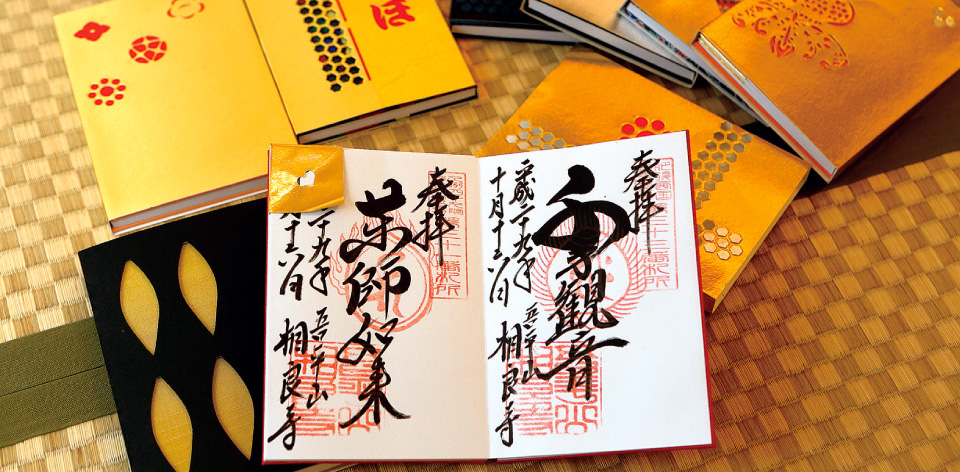 ぽ
奉拝
千手観音
平成二十九年
十月十六日
吾平山
相良寺
奉拝
薬師如来
二十九年
月十六日
吾平山
相良寺